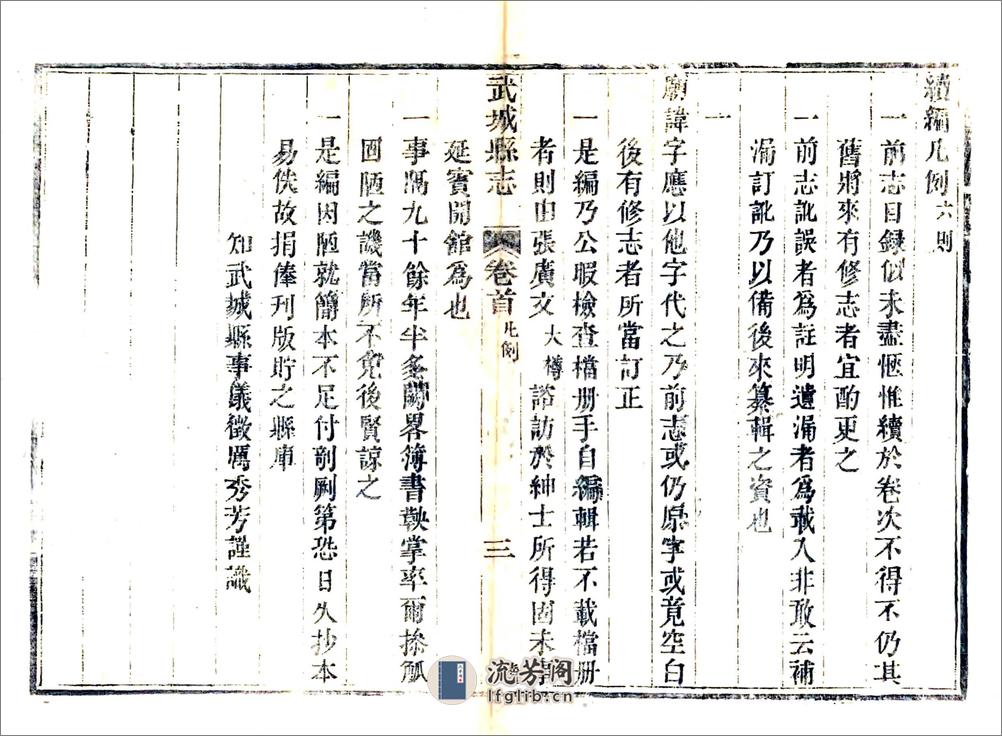 續編凡例六則
一前志目錄似未盡愜惟續於卷次不得不仍其
舊將來有修志者宜酌更之
一前志訛誤者為註明遺漏者為載入非敢云補
漏訂訛乃以備後來纂輯之資也
一
廟諱字應以他字代之乃前志或仍原字或竟空白
後有修志者所當訂正
一是編乃公暇檢查檔册手自編輯若不載檔册
者則由張廣文大樽諮訪於紳士所得固未
武城縣志
卷首
凡例
三
延賓開館為也
一事隔九十餘年半多闕畧簿書鞅掌率爾操觚
固陋之譏當所不免後賢諒之
一是編因陋就簡本不足付剞劂第恐日久抄本
易佚故捐俸刊版貯之縣庫
知武城縣事儀徵厲秀芳謹識
流芳閣
lfglib.cn